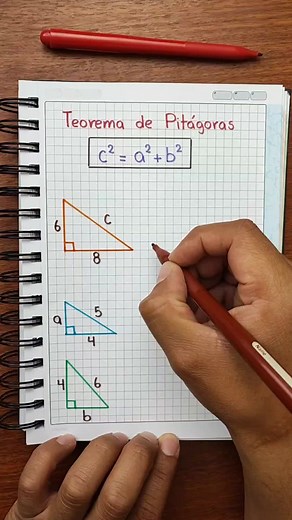 Teorema de Pitágoras
c² = a² + b²
6 c
8
a 5
4
4 6
b